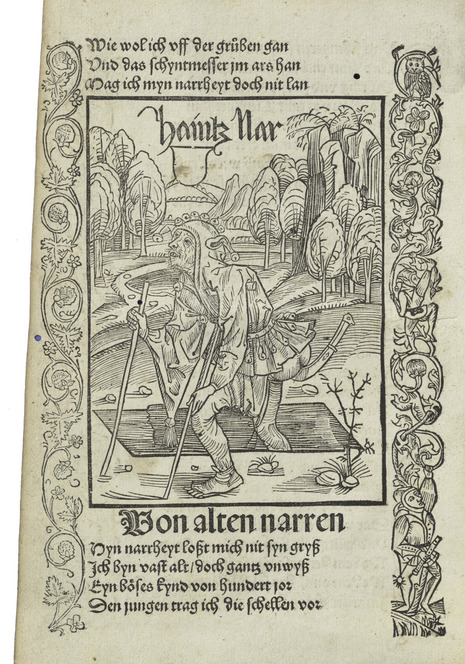 Wie wol ich vff der grůben gan
Vnd das schyntmesser jm ars han
Mag ich myn narrheyt doch nit lan
haintz Nar
Von alten narren
Myn narrheyt loßt mich nit syn gryß
Ich byn vast alt / doch gantz vnwyß
Eyn bőses kynd von hundert jor
Den jungen trag ich die schellen vor